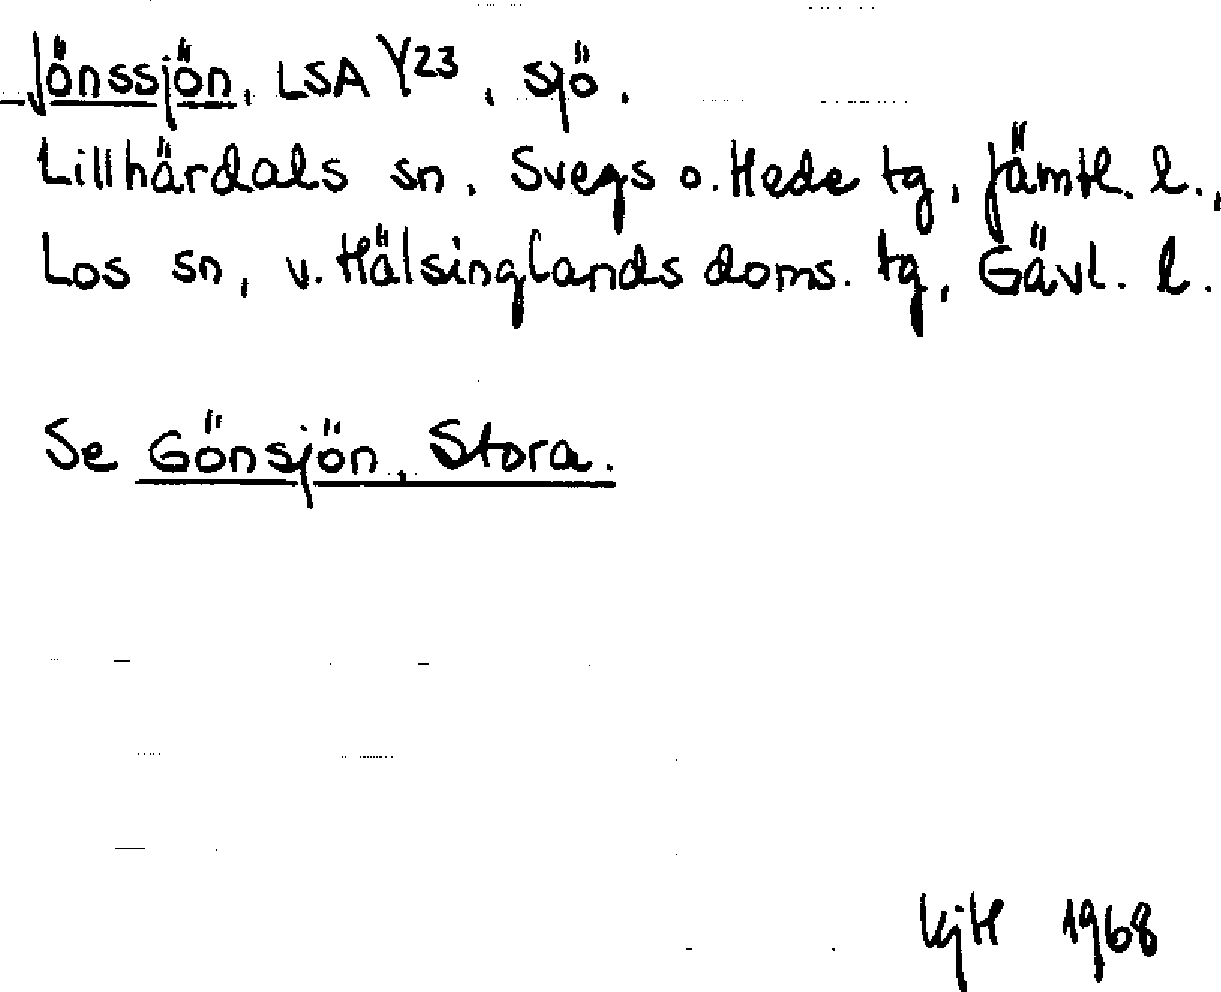 Jönssjön, LSA Y23, sjö.
Lillhärdals sn, Svegs o. Hede tg, Jämtl. l.,
Los sn, v. Hälsinglands doms. tg, Gävl. l.
Se Gönsjön, Stora.
KjH 1968